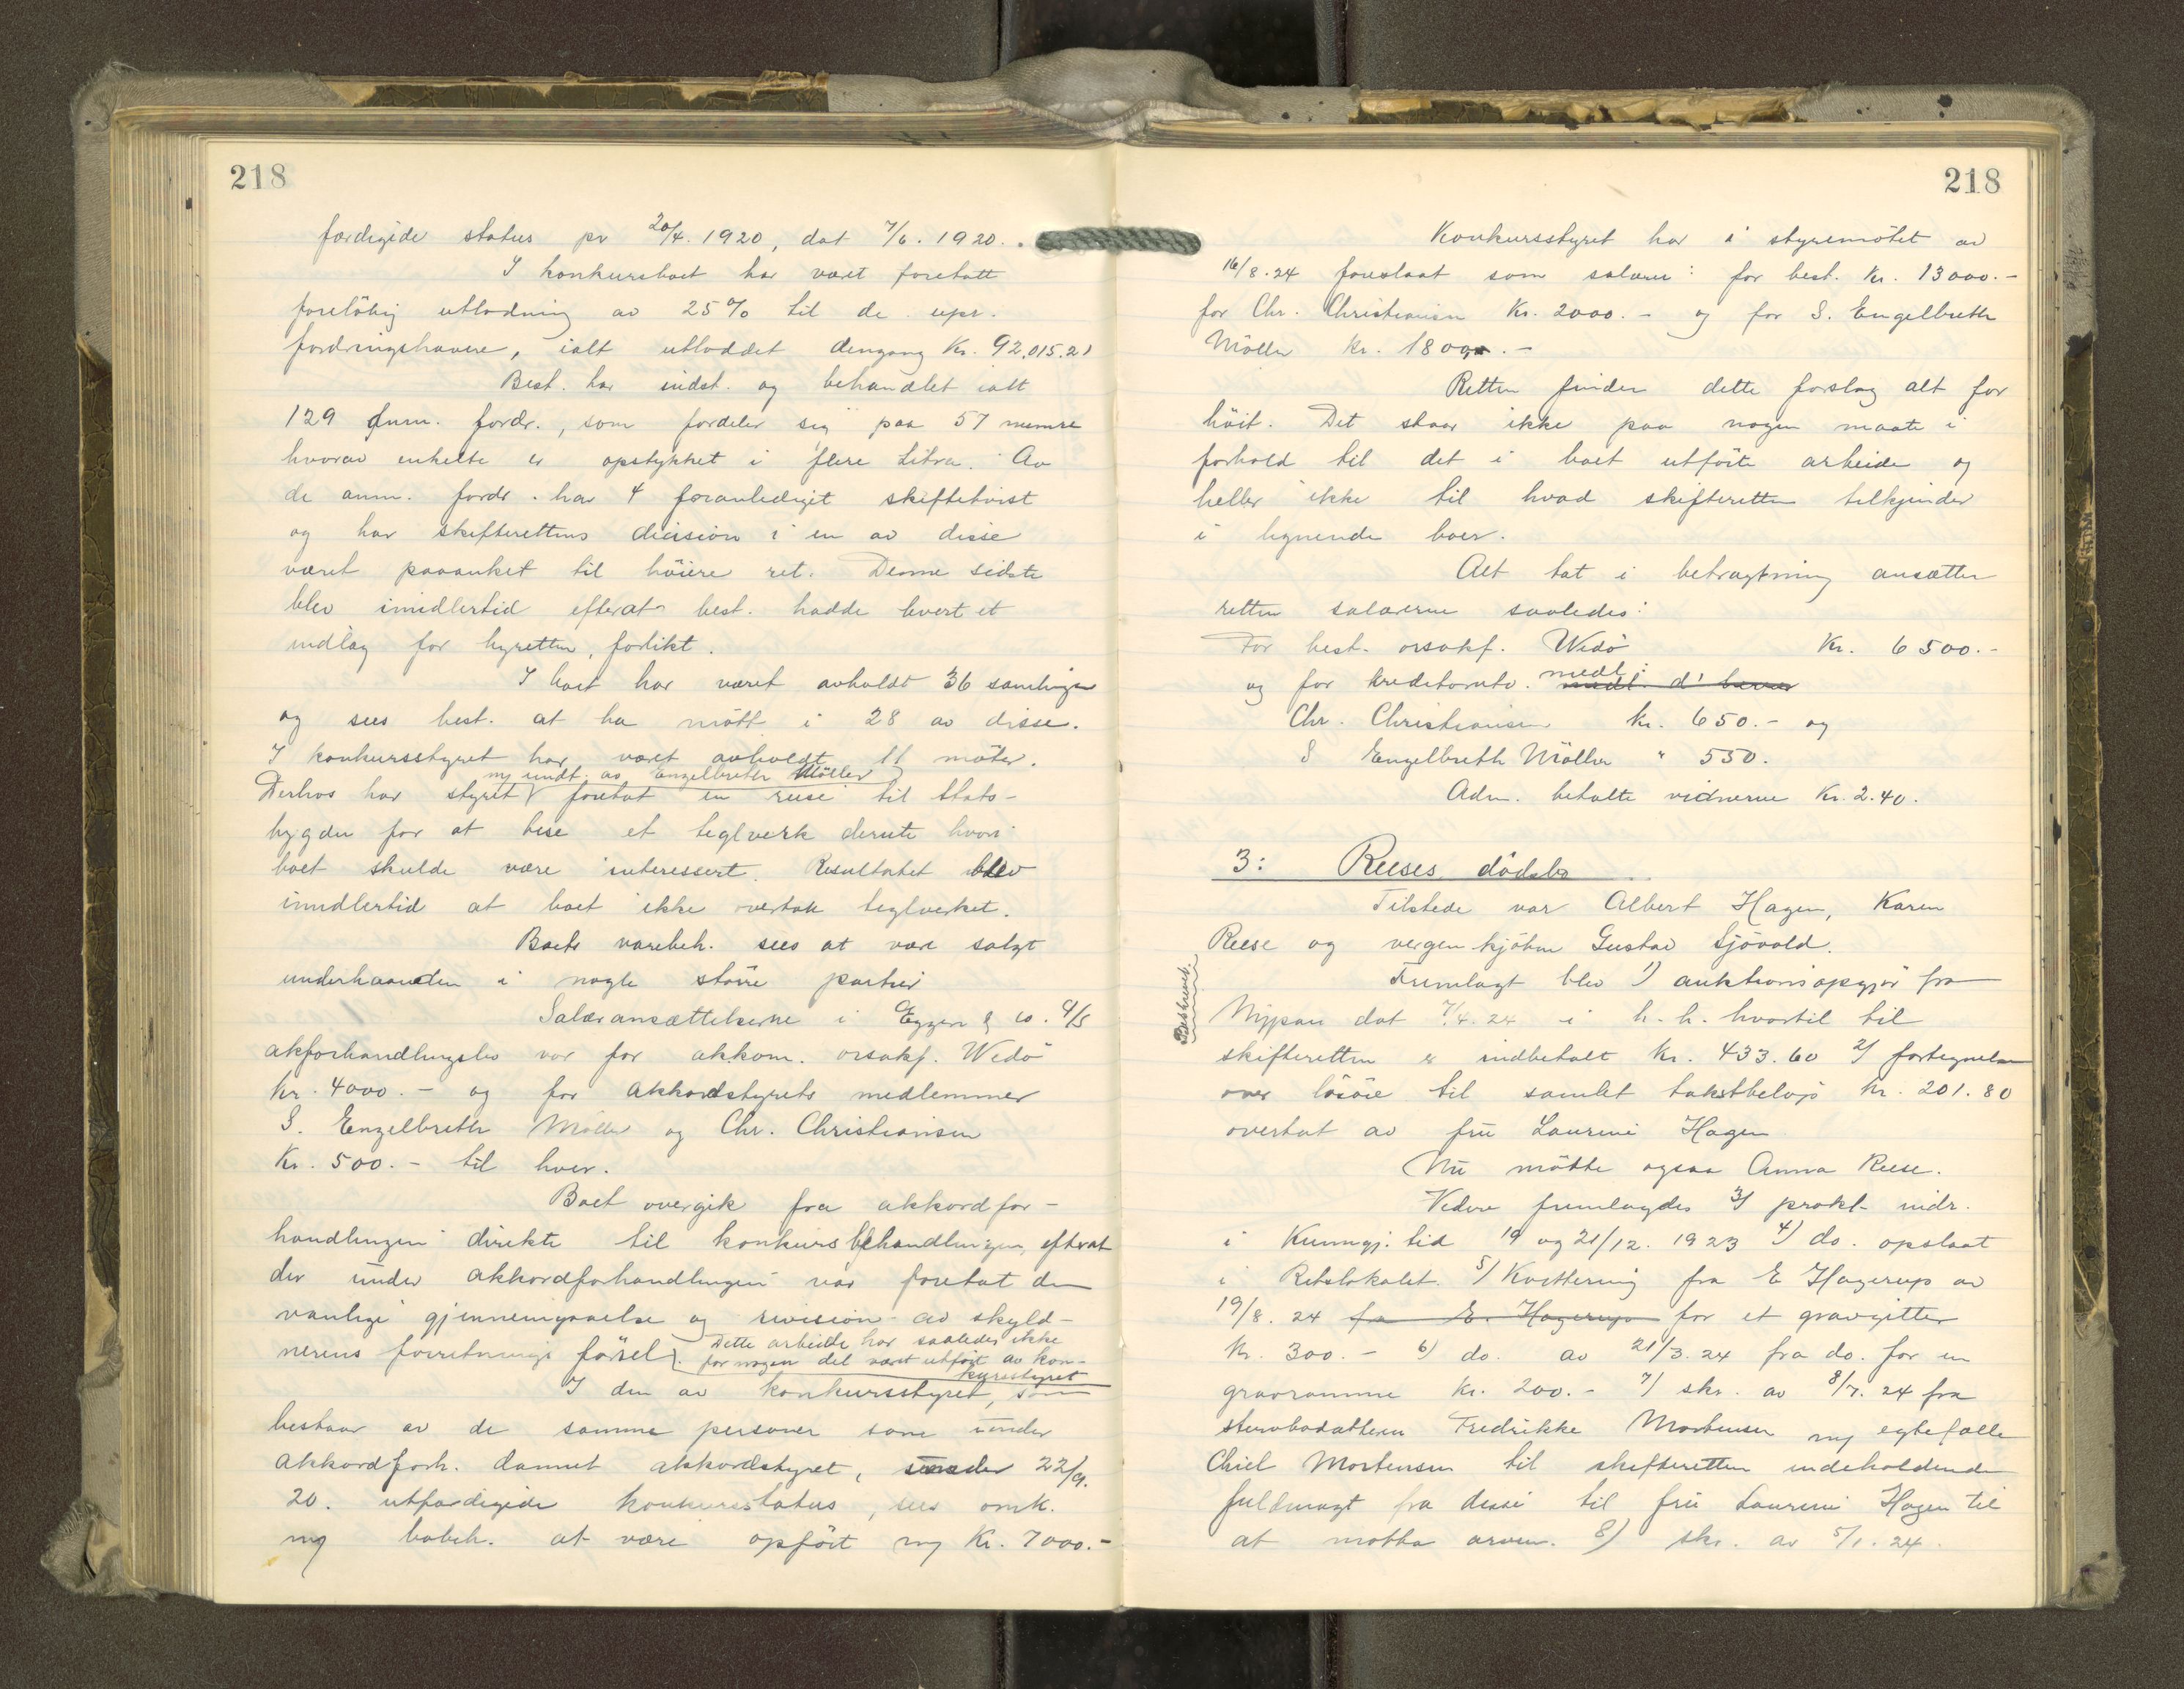 218
færdigede status pr 20/4. 1920, dat 7/6. 1920.
I konkursboet har været foretatt
foreløbig utlodning av 25% til de upr.
fordringshavere, ialt utloddet dengang Kr. 92.015.21
Best. har indst. og behandlet ialt
129 anm. fordr., som fordeler sig paa 57 numre
hvorav enkelte er opstykket i flere Litra. Av
de anm. fordr. har 4 foranlediget skiftetvist
og har skifterettens decision i en av disse
været paaanket til höiere ret. Denne sidste
blev imidlertid efterat best. hadde levert et
indlæg for byretten, forlikt.
I boet har været avholdt 36 samlinger
og sees best. at ha mött i 28 av disse.
I konkursstyret har været avholdt 11 möter.
m/ undt. av Engelbreth Möller
Derhos har styret foretat en reise til Stads-
bygden for at bese et teglverk derute hvori
boet skulde være interessert. Resultatet blev
imidlertid at boet ikke overtok teglverket.
Boets varebeh. sees at være solgt
underhaanden i nogle större partier
Salæransættelserne i Eggen & Co. A/S
akforhandlingsbo var for akkom. orsakf. Wedö
Kr. 4000.- og for akkordstyrets medlemmer
S. Engelbreth Möller og Chr. Christiansen
Kr. 500.- til hver.
Boet overgik fra akkordfor-
handlingen direkte til konkursbehandlingen, efterat
der under akkordforhandlingen var foretat den
vanlige gjennemgaaelse og revision av skyld-
nerens forretningsförsel. Dette arbeide har saaledes ikke
for nogen del været utfört av kon-
kursstyret
I den av konkursstyret, som
bestaar av de samme personer som under
akkordforh. dannet akkordstyret, under 22/9.
20. utfærdigede konkursstatus, sees omk.
m/ bobeh. at være opfört m/ Kr. 7000.-
218
Konkursstyret har i styremötet av
16/8.24 foreslaat som salærer: for best. Kr. 13000.-
for Chr. Christiansen Kr. 2000.- og for S. Engelbreth
Möller kr. 1800.-
Retten finder dette forslag alt for
höit. Det staar ikke paa nogen maate i
forhold til det i boet utförte arbeide og
heller ikke til hvad skifteretten tilkjender
i lignende boer.
Alt tat i betragtning ansætter
retten salærerne saaledes:
For best. orsakf. Wedö Kr. 6500.-
og for kreditorutv. medl:
Chr. Christiansen kr. 650.- og
S Engelbreth Möller " 550.
Adm. betalte vidnerne Kr. 2.40.
3: Reeses dödsbo
Tilstede var Albert Hagen, Karen
Reese og vergen kjöbm Gustav Sjövold.
Beskrevet.
Fremlagt blev 1) auktionsopgjör fra
Nypan dat 7/4.24 i h. h. hvortil til
skifteretten er indbetalt Kr. 433.60 2/ fortegnelse
over lösöre til samlet takstbelöp kr. 201.80
overtat av fru Laurine Hagen
Nu mötte ogsaa Anna Reese.
Videre fremlagdes 3/ prokl. indr.
i Kunngj. tid 19 og 21/12. 1923 4) do. opslaat
i Retslokalet. 5/ Kvittering fra E Hagerup av
19/8. 24 fra E. Hagerup for et gravgitter
Kr. 300.- 6) do. av 21/3.24 fra do. for en
gravramme Kr. 200.- 7/ skr. av 8/7.24 fra
stervbodatteren Fredrikke Mortensen m/ egtefælle
Chiel Mortensen til skifteretten indeholdende
fuldmagt fra disse til fru Laurine Hagen til
at motta arven. 8) skr. av 5/1.24.